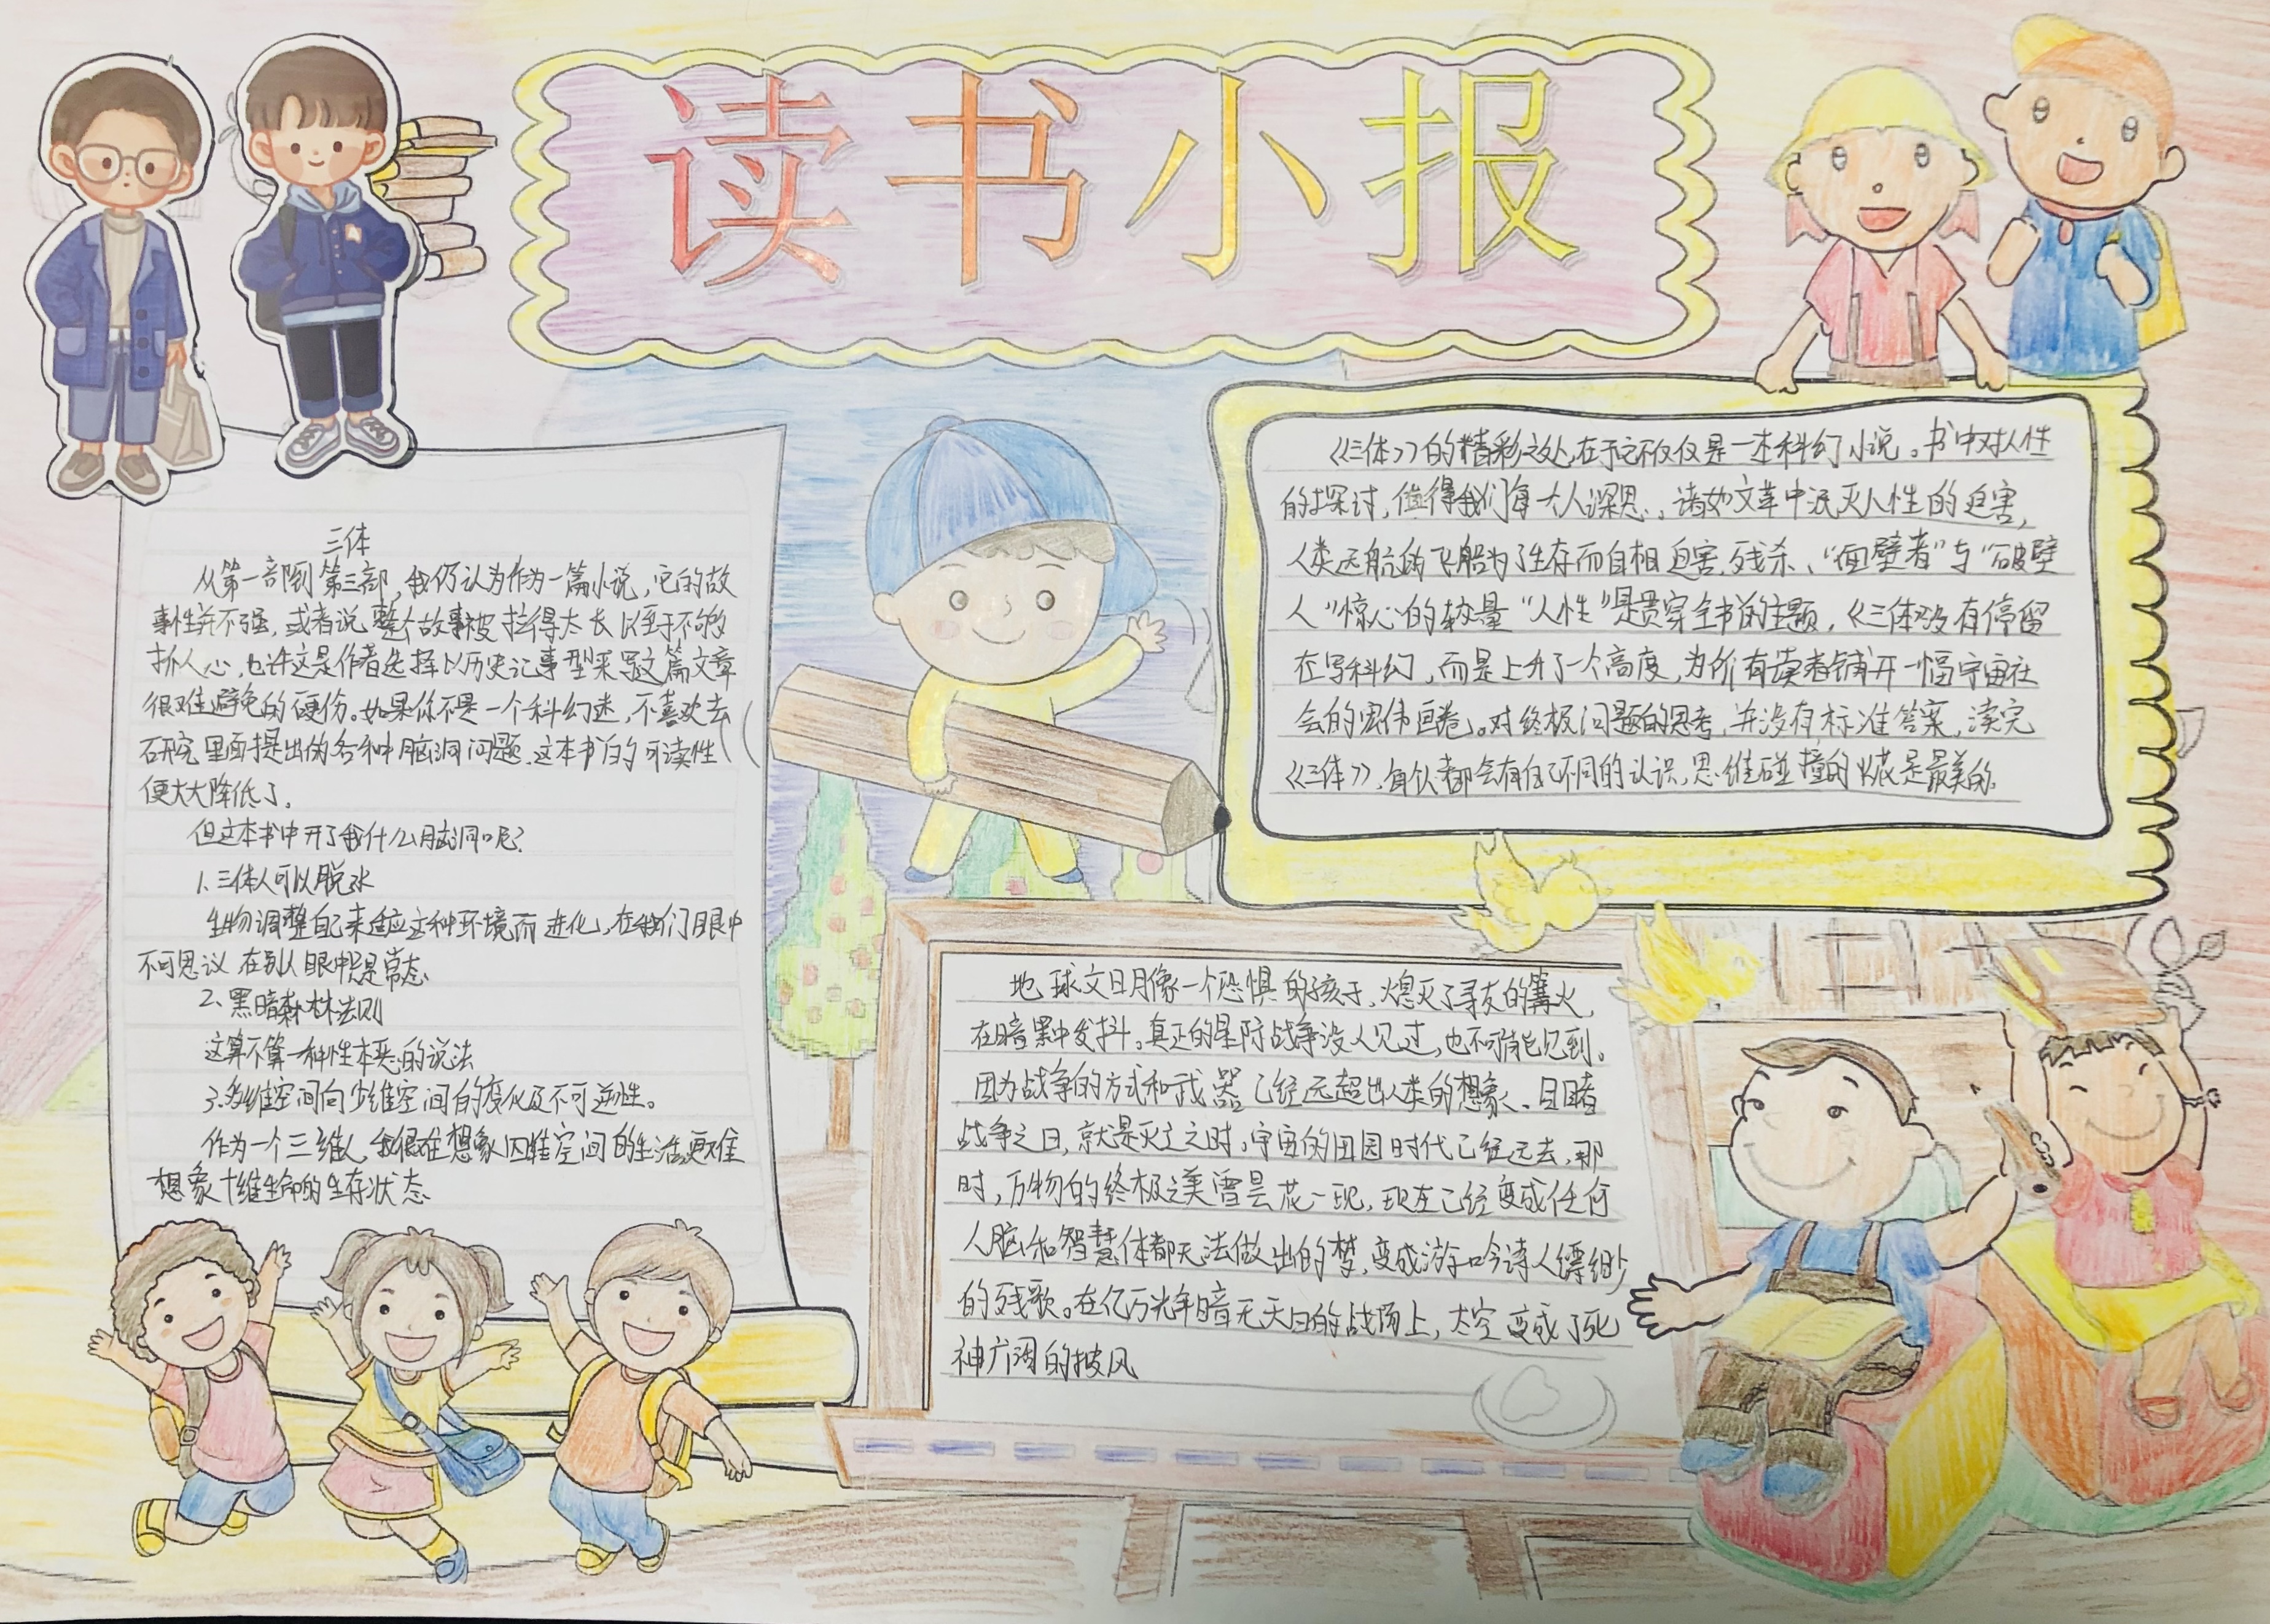 读书小报
三体
从第一部到第三部，我仍认为作为一篇小说，它的故
事性并不强，或者说整个故事被拉得太长以至于不够
抓人心，也许这是作者选择以历史记事型来写这篇文章
很难避免的硬伤。如果你不是一个科幻迷，不喜欢去
研究里面提出的各种脑洞问题，这本书的可读性
便大大降低了。
但这本书中开了我什么脑洞呢？
1.三体人可以脱水
生物调整自己来适应这种环境而进化，在我们眼中
不可思议 在别人眼中只是常态。
2、黑暗森林法则
这算不算一种性本恶的说法
3.多维空间向少维空间的变化及不可逆性。
作为一个三维人，我很难想象四维空间的生活，更难
想象十维生命的生存状态。
《三体》的精彩之处，在于它不仅仅是一本科幻小说。书中对人性
的探讨，值得我们每一个人深思。诸如文革中泯灭人性的迫害，
人类远航的飞船为了生存而自相迫害，残杀、“面壁者”与“破壁
人”惊心的较量“人性”是贯穿全书的主题，《三体》没有停留
在写科幻，而是上升了一个高度，为所有读者铺开一幅宇宙社
会的宏伟画卷。对终极问题的思考，并没有标准答案，读完
《三体》，每个人都会有自己不同的认识，思维碰撞的火花是最美的。
地球文日月像一个恐惧的孩子，熄灭了寻友的篝火，
在暗黑中发抖。真正的星际战争没人见过，也不可能见到。
因为战争的方式和武器已经远超出人类的想象、目睹
战争之日，就是灭亡之时，宇宙的田园时代已经远去，那
时，万物的终极之美曾昙花一现，现在已经变成任何
人脑和智慧体都无法做出的梦，变成游吟诗人缥缈
的残歌。在亿万光年暗无天日的战场上，太空变成了死
神广阔的披风